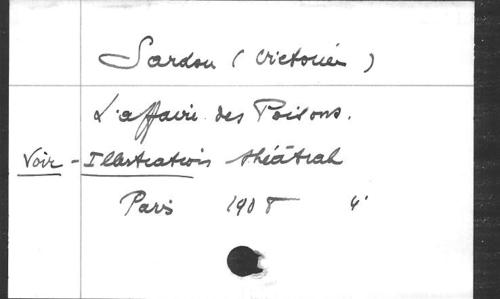 Sardou (Victorien)
L'affaire des Poisons.
Voir - Illustration théâtrale
Paris 1908 4°